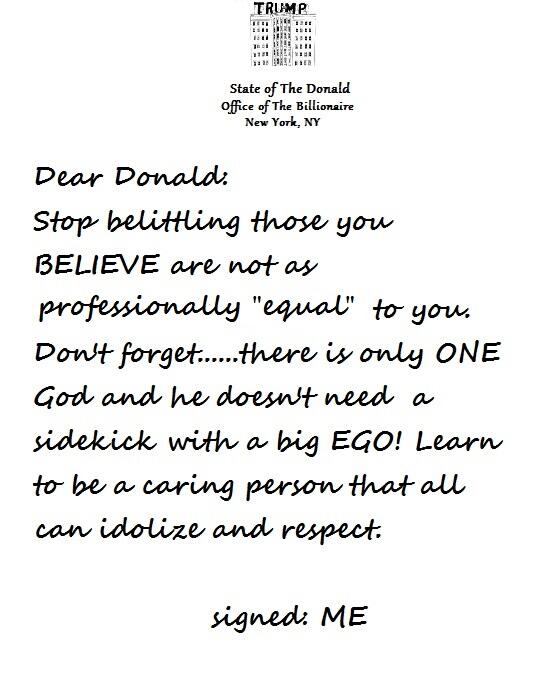 TRUMP
State of The Donald
Office of The Billionaire
New York, NY
Dear Donald:
Stop belittling those you
BELIEVE are not as
professionally "equal" to you.
Don't forget......there is only ONE
God and he doesn't need a
sidekick with a big EGO! Learn
to be a caring person that all
can idolize and respect.
signed: ME